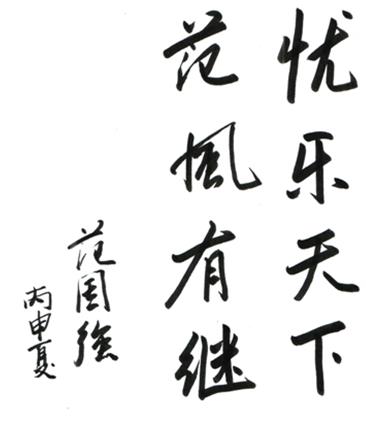 忧乐天下
范風有继
范国强
丙申夏